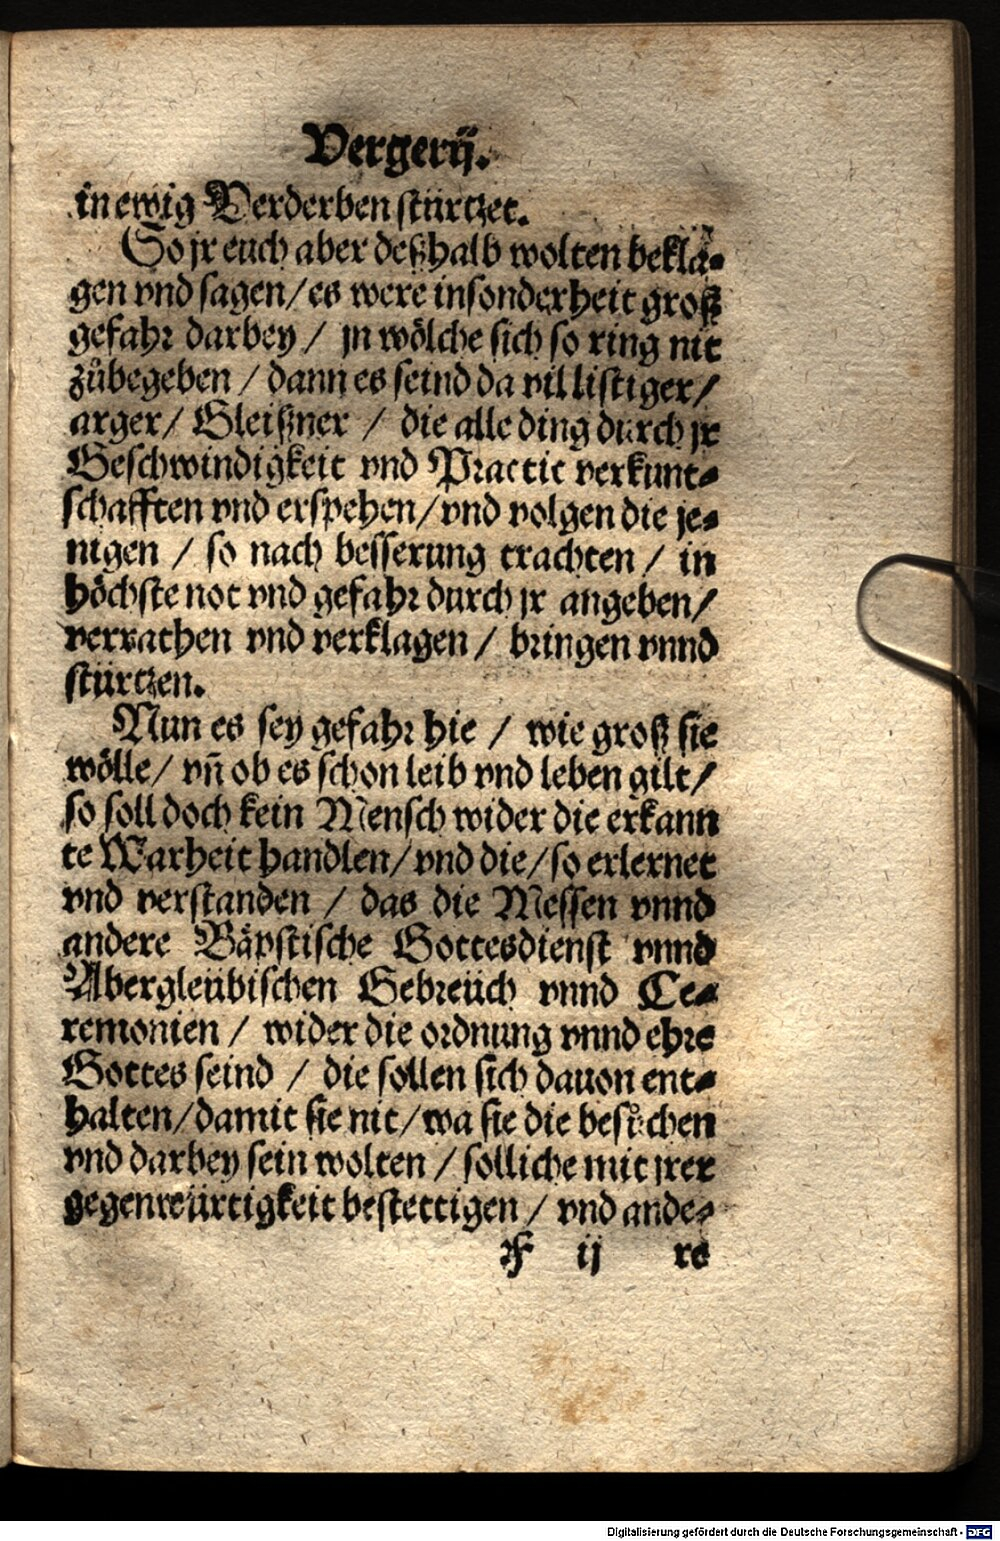 Vergerij.
in ewig Verderben stürtzet.
So jr euch aber deßhalb wolten beklä-
gen vnd sagen/ es were insonderheit groß
gefahr darbey / jn wölche sich so ring nit
zůbegeben / dann es seind da vil listiger/
arger/ Gleißner / die alle ding durch jr
Geschwindigkeit vnd Practic verkunt-
schafften vnd erspehen/ vnd volgen die je-
nigen / so nach besserung trachten / in
höchste not vnd gefahr durch jr angeben/
verrathen vnd verklagen / bringen vnnd
stürtzen.
Nun es sey gefahr hie / wie groß sie
wölle/ vñ ob es schon leib vnd leben gilt/
so soll doch kein Mensch wider die erkann
te Warheit handlen/ vnd die/ so erlernet
vnd verstanden / das die Messen vnnd
andere Bäpstische Gottesdienst vnnd
Abergleübischen Gebreüch vnnd Ce-
remonien / wider die ordnung vnnd ehre
Gottes seind / die sollen sich dauon ent-
halten/ damit sie nit/ wa sie die besůchen
vnd darbey sein wolten / solliche mit jrer
gegenweürtigkeit bestettigen / vnd ande-
F ij re
Digitalisierung gefördert durch die Deutsche Forschungsgemeinschaft - DFG